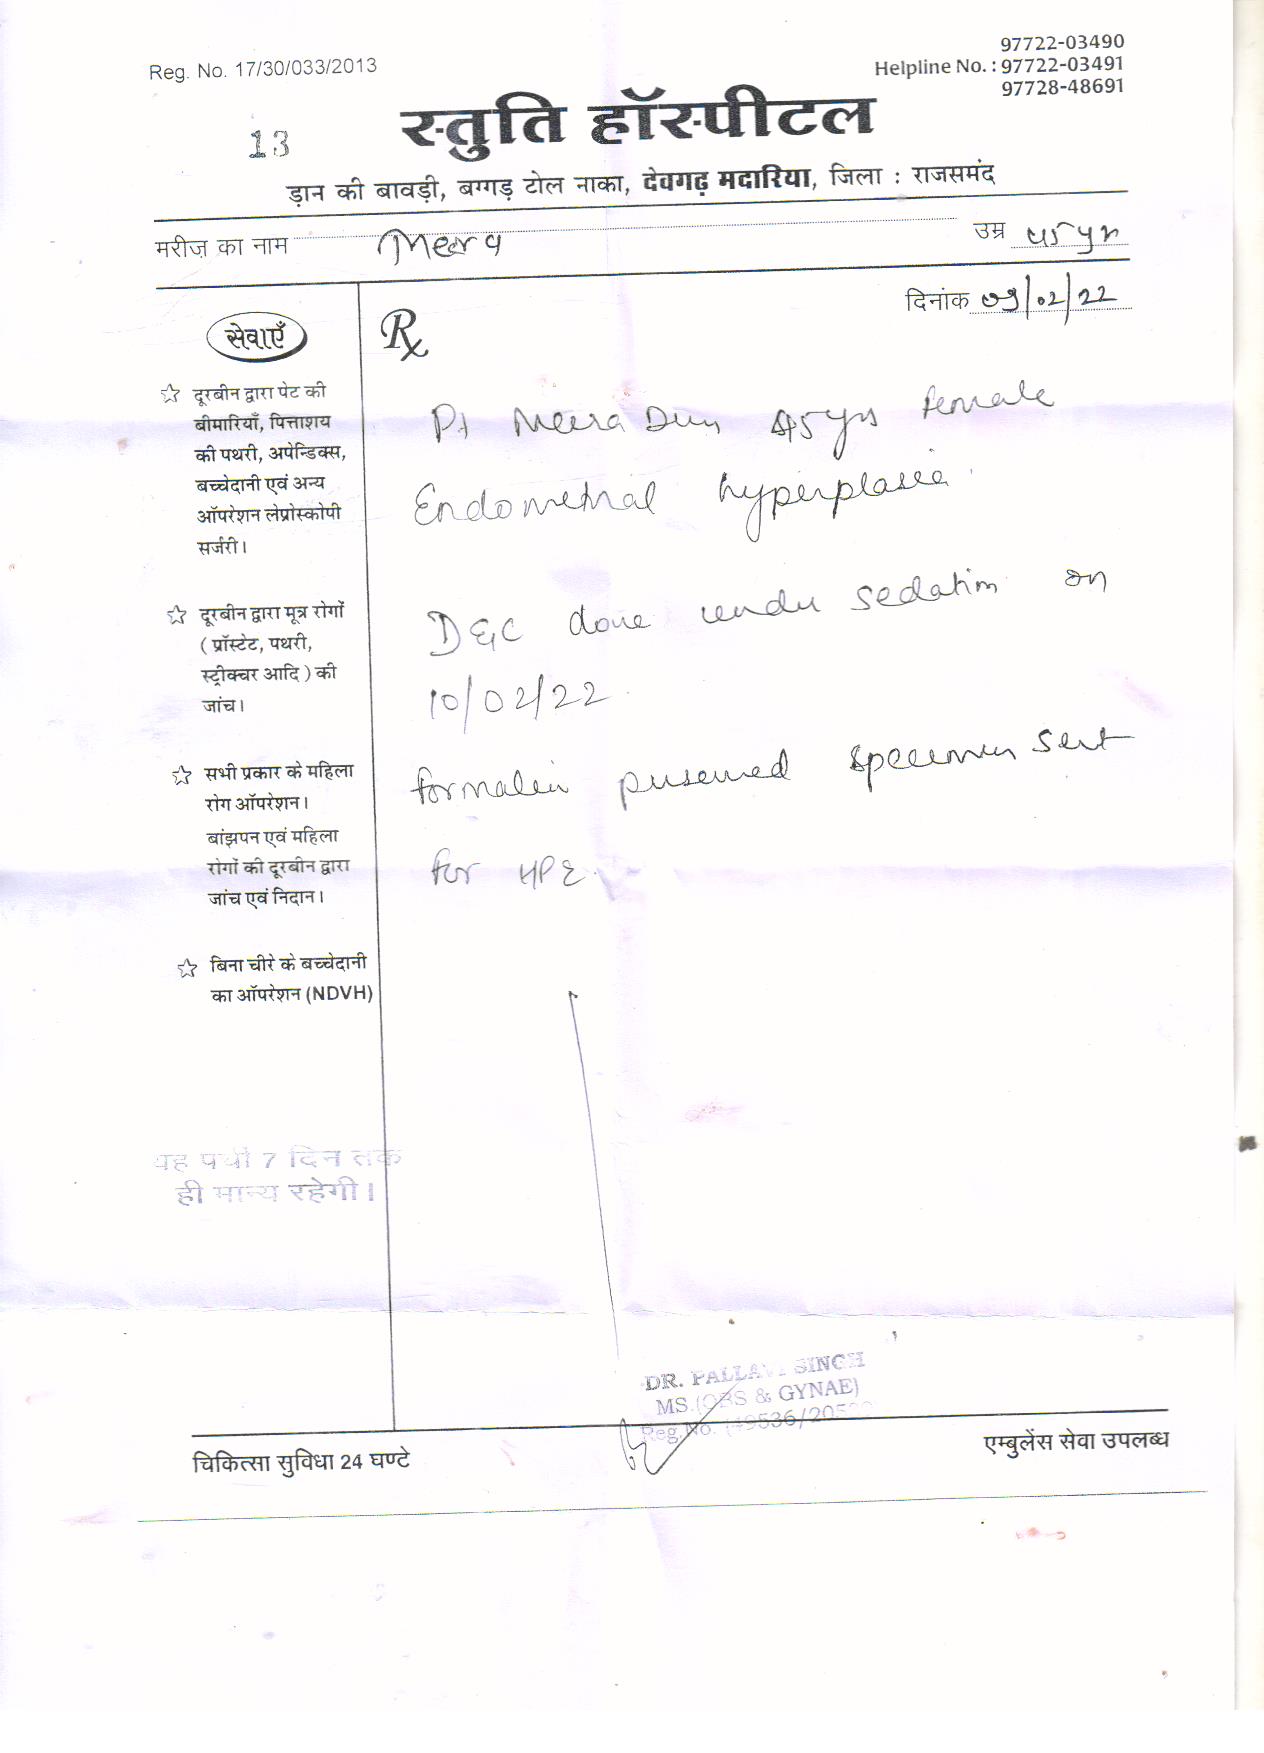 Reg. No. 17/30/033/2013
97722-03490
Helpline No. : 97722-03491
97728-48691
13
स्तुति हॉस्पीटल
ड़ान की बावड़ी, बग्गड़ टोल नाका, देवगढ़ मदारिया, जिला : राजसमंद
मरीज़ का नाम Meera उम्र 45 yr
दिनांक 09/02/22
सेवाएँ
☆ दूरबीन द्वारा पेट की
बीमारियाँ, पित्ताशय
की पथरी, अपेन्डिक्स,
बच्चेदानी एवं अन्य
ऑपरेशन लेप्रोस्कोपी
सर्जरी।
☆ दूरबीन द्वारा मूत्र रोगों
( प्रॉस्टेट, पथरी,
स्ट्रीक्चर आदि ) की
जांच।
☆ सभी प्रकार के महिला
रोग ऑपरेशन।
बांझपन एवं महिला
रोगों की दूरबीन द्वारा
जांच एवं निदान।
☆ बिना चीरे के बच्चेदानी
का ऑपरेशन (NDVH)
यह पर्ची 7 दिन तक
ही मान्य रहेगी।
Rx
Pt Meera 45 yrs female
Endometrial hyperplasia
D&C done under sedation on
10/02/22
formalin preserved specimen sent
for HPE
DR. PALLAVI SINGH
MS.(OBS & GYNAE)
Reg.No.
चिकित्सा सुविधा 24 घण्टे
एम्बुलेंस सेवा उपलब्ध